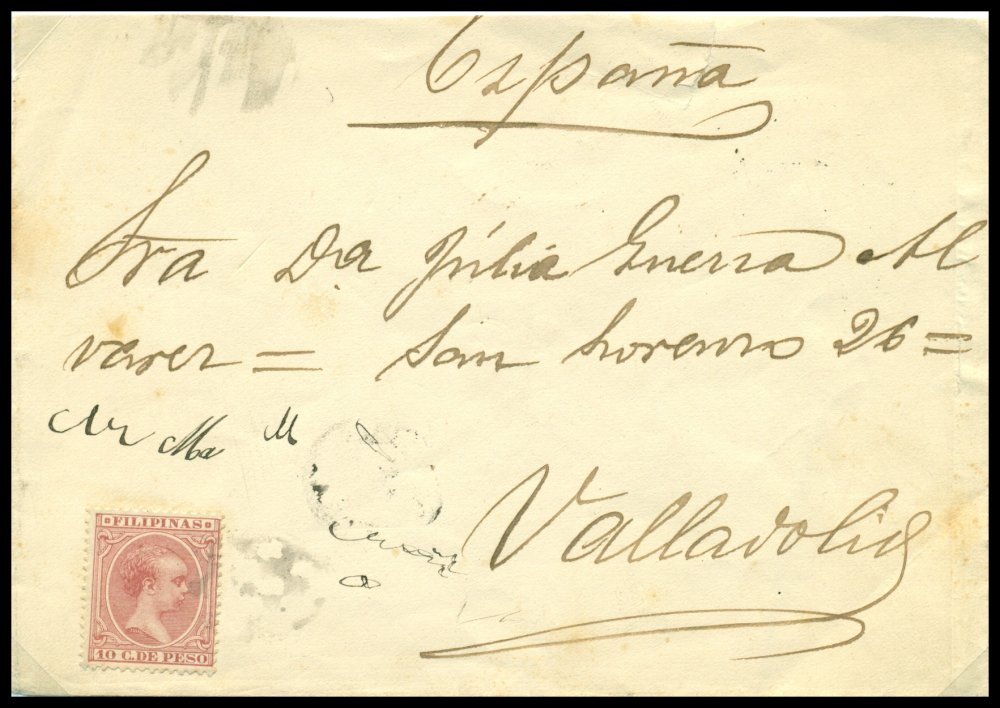 España
Sra Da Júlia Guerra Al
varez = San Lorenzo 26 =
Valladolid
FILIPINAS
10 C. DE PESO